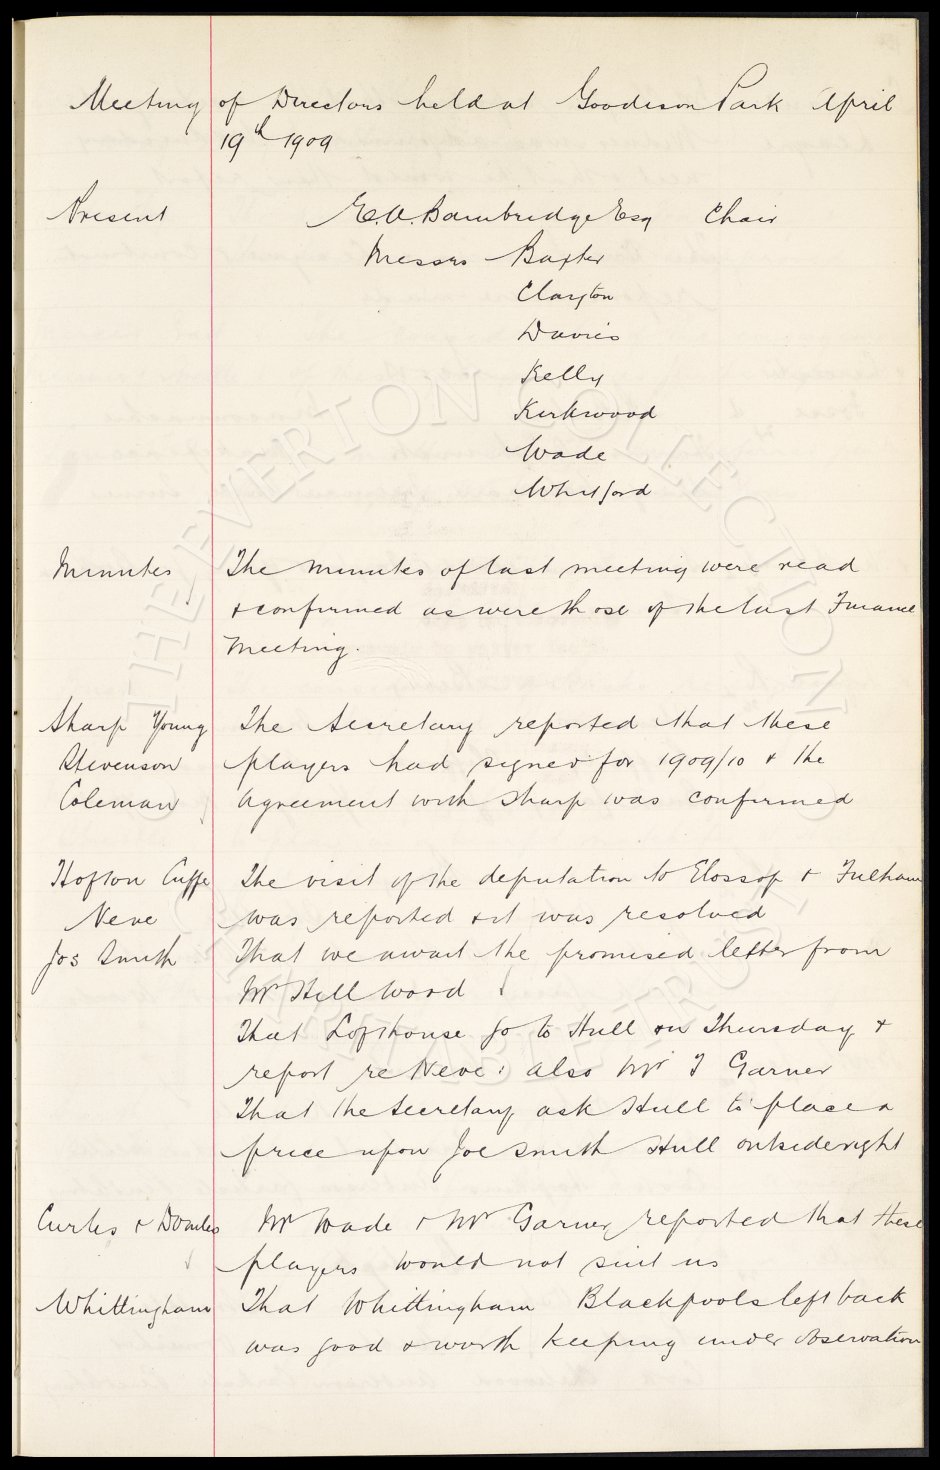 Meeting of Directors held at Goodison Park April
19th 1909
Present E.A. Bainbridge Esq Chair
Messrs Baxter
Clayton
Davies
Kelly
Kirkwood
Wade
Whitford
Minutes The minutes of last meeting were read
& confirmed as were those of the last Finance
Meeting.
Sharp Young The Secretary reported that these
Stevenson players had signed for 1909/10 & the
Coleman Agreement with Sharp was confirmed
Hofton Cuffe The visit of the deputation to Glossop & Fulham
Neve was reported & it was resolved
Jos Smith That we await the promised letter from
Mr Hill Wood
That Lofthouse go to Hull on Thursday &
report re Neve: also Mr J Garner
That the Secretary ask Hull to place a
price upon Joe Smith Hull outside right
Curtis & Mr Wade & Mr Garner reported that these
players would not suit us
Whittingham That Whittingham Blackpools left back
was good & worth keeping under observation
THE EVERTON COLLECTION
CHARITABLE TRUST